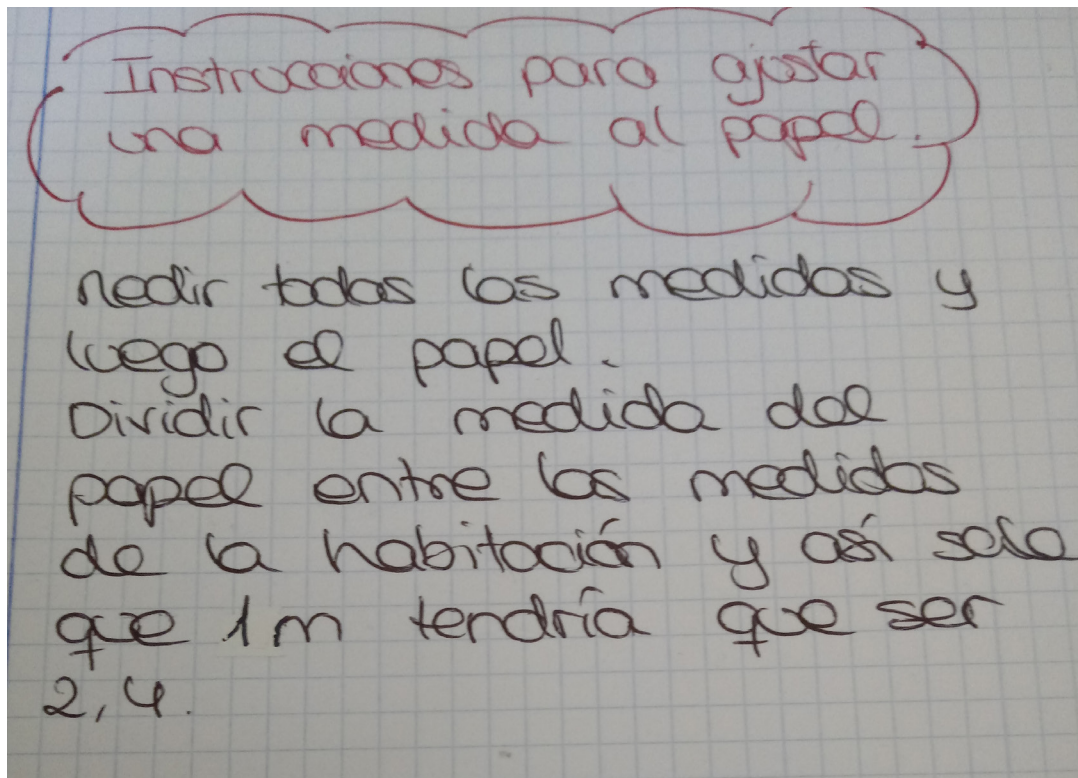 Instrucciones para ajustar
una medida al papel.
Medir todas las medidas y
luego el papel.
Dividir la medida del
papel entre las medidas
de la habitación y así sale
que 1m tendría que ser
2,4.